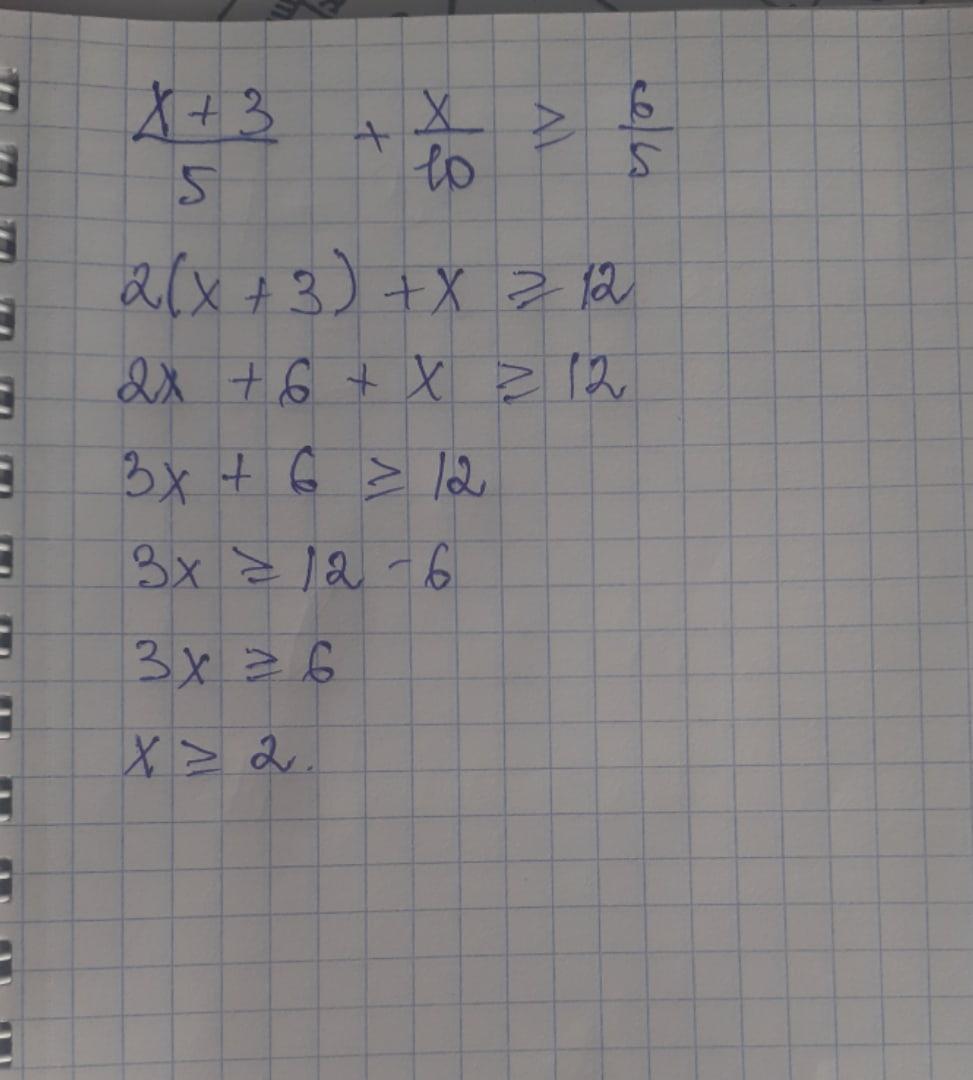 (x + 3)/5 + x/10 ≥ 6/5
2(x + 3) + x ≥ 12
2x + 6 + x ≥ 12
3x + 6 ≥ 12
3x ≥ 12 - 6
3x ≥ 6
x ≥ 2.